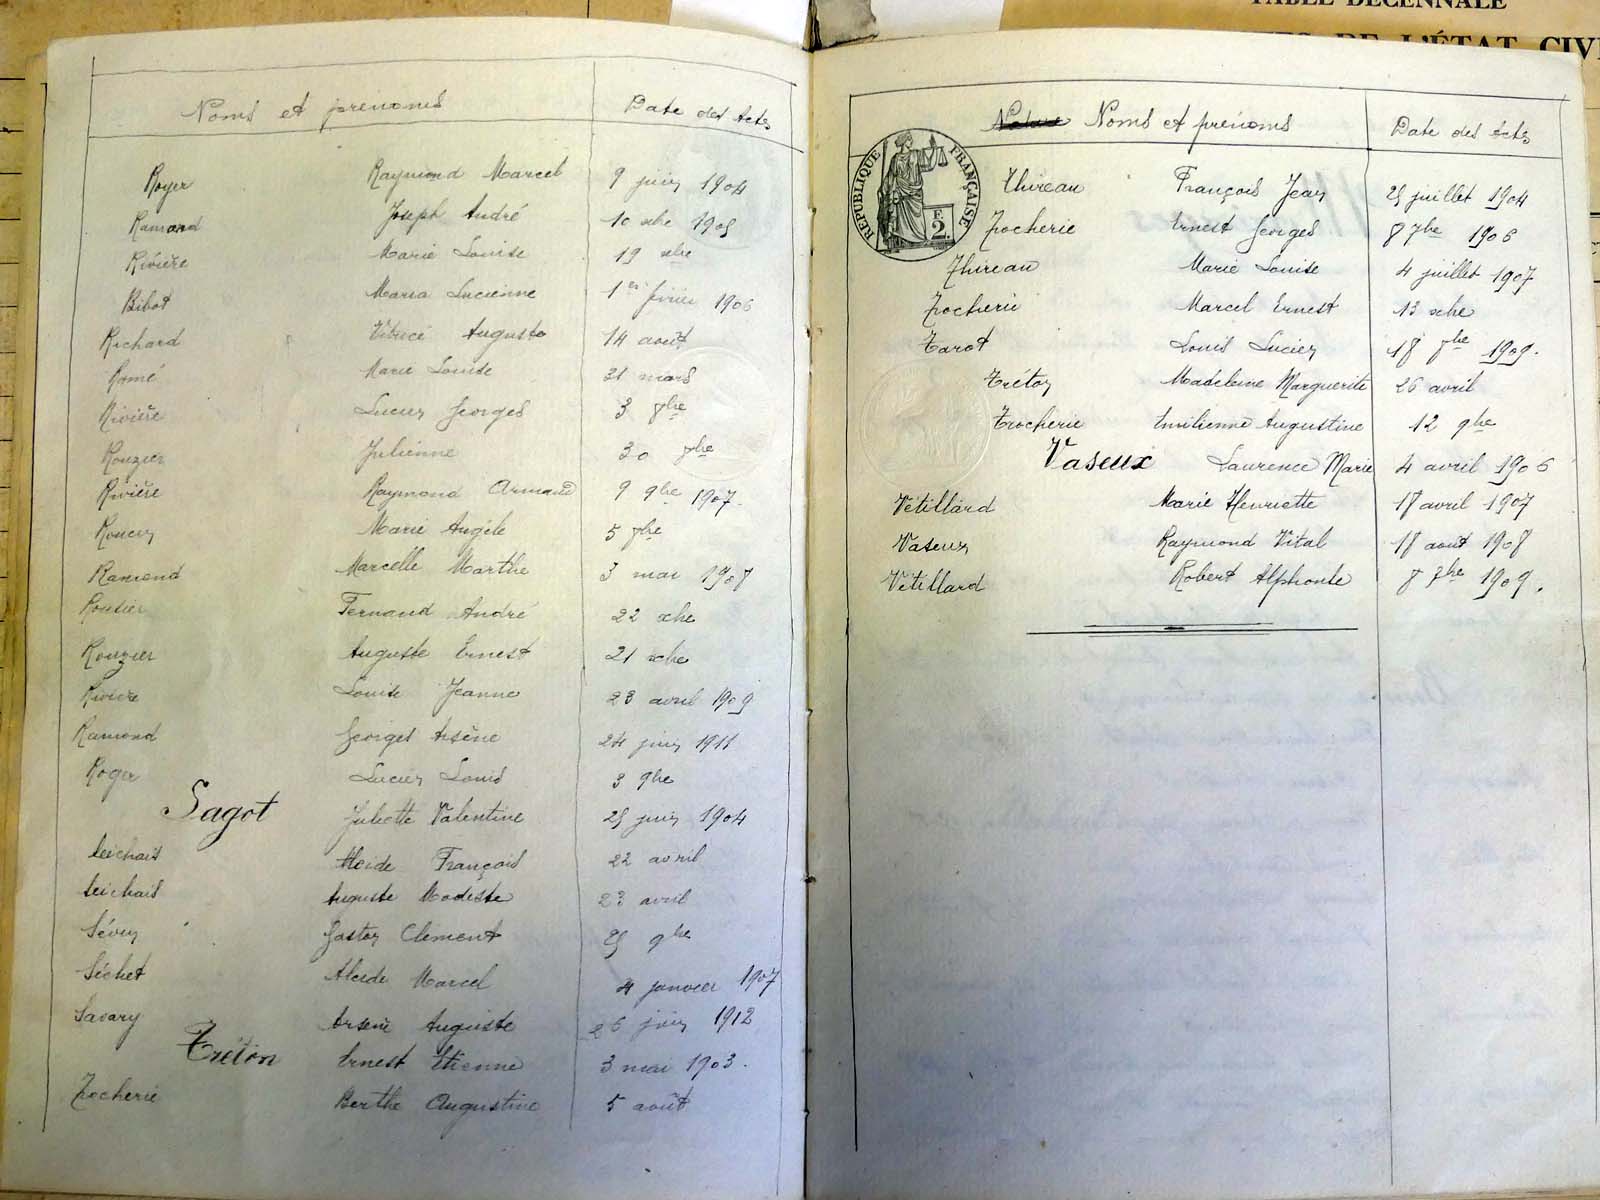 TABLE DÉCENNALE
DE L'ÉTAT CIVI
Noms et prénoms Date des Actes
Royer Raymond Marcel 9 juin 1904
Ramond Joseph André 10 xbre 1905
Rivière Marie Louise 19 xbre
Bibot Maria Lucienne 1er février 1906
Richard Auguste 14 août
Romé Marie Louise 21 mars
Rivière Lucien Georges 3 7bre
Rouzier Julienne 30 7bre
Rivière Raymond Armand 9 9bre 1907.
Roncin Marie Angèle 5 7bre
Ramond Marcelle Marthe 3 mai 1908
Routier Fernand André 22 xbre
Rouzier Auguste Ernest 21 xbre
Rivière Louise Jeanne 23 avril 1909
Ramond Georges Arsène 24 juin 1911
Roger Lucien Louis 3 9bre
Sagot Juliette Valentine 25 juin 1904
Seichais Alcide François 22 avril
Seichais Auguste Modeste 23 avril
Sévin Gaston Clément 25 9bre
Séchet Alcide Marcel 4 janvier 1907
Savary Arsène Auguste 26 juin 1912
Tréton Ernest Etienne 3 mai 1903.
Trocherie Berthe Augustine 5 août
Noms et prénoms Date des Actes
RÉPUBLIQUE FRANÇAISE
F. 2.
Thireau François Jean 25 juillet 1904
Trocherie Ernest Georges 8 7bre 1906
Thireau Marie Louise 4 juillet 1907
Trocherie Marcel Ernest 13 xbre
Tarot Louis Lucien 18 7bre 1909.
Tréton Madeleine Marguerite 26 avril
Trocherie Emilienne Augustine 12 9bre
Vaseux Laurence Marie 4 avril 1906
Vétillard Marie Henriette 17 avril 1907
Vaseux Raymond Vital 17 août 1908
Vétillard Robert Alphonse 8 7bre 1909.